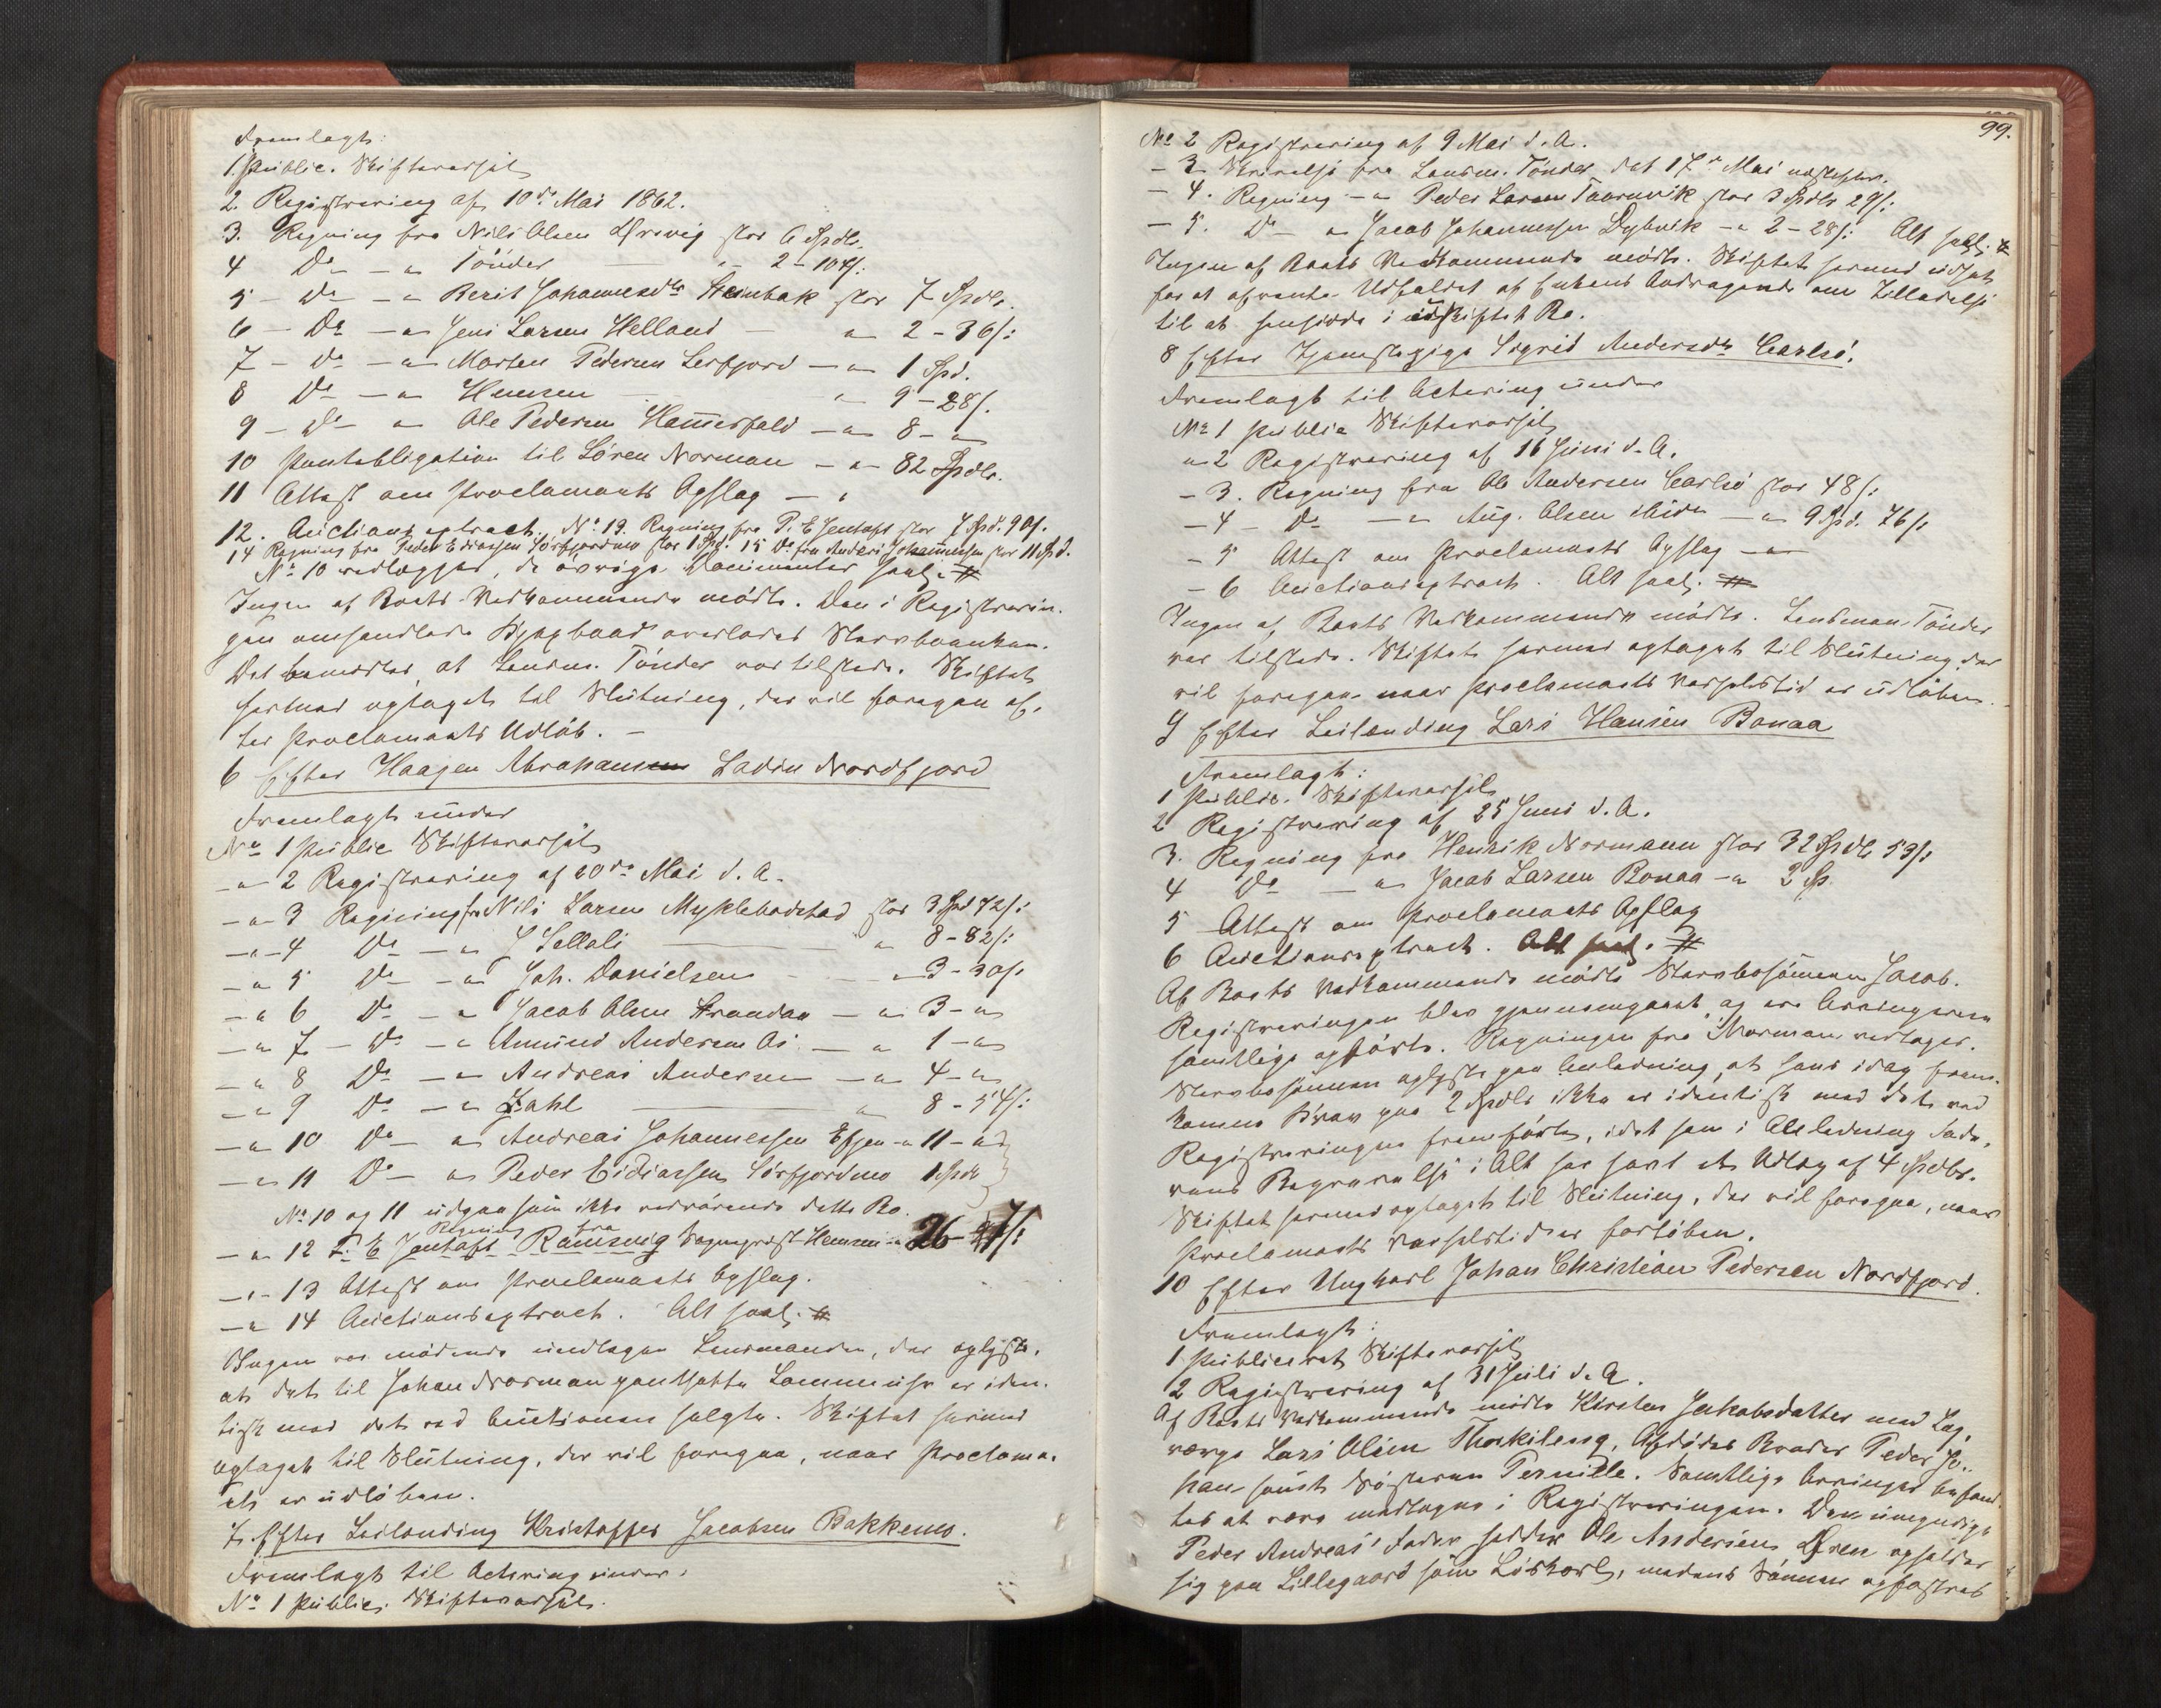 Fremlagt:
1. Public. Skiftevarsel
2. Registrering af 10de Mai 1862.
3. Regning fra Nils Olsen Ørsvig stor 6 Spdlr.
4 Do — " Tönder — " 2-104/:
5 - Do — " Berit Johannesdtr Steinbak stor 7 Spdlr.
6 - Do — " Jens Larsen Helland " 2-36/:
7 - Do — " Morten Pedersen Leifjord — " 1 Spd.
8 Do — " Hemsen " 9-28/.
9 - Do " Ole Pedersen Hamerfald — " 8-"
10 Pantobligation til Sören Norman — " 82 Spdlr.
11 Attest om Proclamaets Opslag — "
12. Auctionsextract. No 13. Regning fra P. E Jentoft stor 7 Spd. 90/.
14 Regning fra Peder Ediassen Sörfjordmo stor 1 Spd. 15 Do fra Anders Johannessen stor 11 Spd.
No 10 vedlægges, de övrige Documenter saal. #
Ingen af Boets Vedkommende mödte. Den i Registrerin-
gen omhandlede Kjøpbaad overlodes Stervboenken.
Det bemærkes, at Lensm. Tönder var tilstede. Skiftet
hermed optaget til Slutning, der vil foregaa ef-
ter Proclamaets Udlöb. —
6 Efter Haagen Abrahamsen Ladin Nordfjord
Fremlagt under
No 1 Public Skiftevarsel
— " 2 Registrering af 20de Mai d. A.
— " 3 Regning fra Nils Larsen Myklebostad stor 3 Spd 72/:
— " 4 Do — " J Jellali — " 8-82/:
— " 5 Do — " Joh. Danielsen — " 3-30/:
— " 6 Do — " Jacob Olsen Strandaa — " 3-"
— " 7 - Do — " Amund Andersen As — " 1-"
— " 8 Do — " Andreas Andersen — " 4-"
— " 9 Do — " Zahl — " 8-54/:
— " 10 Do — " Andreas Johannessen Efjen — " 11-"
— " 11 Do — " Peder Eidiassen Sörfjordmo 1 Spdlr
No 10 og 11 udgaa som ikke vedrörende dette Bo.
— " 12 Regning fra P. E Jentoft Ramsvig Hemsen " 26-
— " 13 Attest om Proclamaets Opslag.
— " 14 Auctionsextract. Alt saal. #
Ingen var mödende undtagen Lensmanden, der oplyste,
at det til Johan Norman pantsatte Lommeuhr er iden-
tisk med det ved Auctionen solgte. Skiftet hermed
optaget til Slutning, der vil foregaa, naar Proclama-
et er udlöben.
7. Efter Leilending Kristoffer Jacobsen Bakkemo.
Fremlagt til Actering under:
No 1 Public. Skiftevarsel.
99.
No 2 Registrering af 9 Mai d. A.
— 3 Skrivelse fra Lensm. Tönder, dat 17de Mai næstefter.
— 4. Regning — " Peder Larsen Taarnvik stor 3 Spdlr 29/:
— 5. Do — " Jacob Johannessen Dybvik — " 2-28/: Alt saal. #
Ingen af Boets Vedkommende mödte. Skiftet hermed udsat
for at afvente Udfaldet af Enkens Andragende om Tilladelse
til at hensidde i uskiftet Bo.
8 Efter Tjenestepige Sigrid Andersdtr Carlsö.
Fremlagt til Actering under
No 1 Public Skiftevarsel
" 2 Registrering af 16 Juni d. A.
— 3. Regning fra Ole Andersen Carlsö stor 48/:
— 4 — Do — " Aug. Olsen ibid. — " 9 Spd. 76/:
— 5 Attest om Proclamaets Opslag —
— 6 Auctionsextract. Alt saal. #
Ingen af Boets Vedkommende mödte. Lensmand Tönder
var tilstede. Skiftet hermed optaget til Slutning, der
vil foregaa naar Proclamaets Varselstid er udlöben.
9 Efter Leilending Lars Hansen Bonaa
Fremlagt:
1 Public. Skiftevarsel
2 Registrering af 25 Juni d. A.
3. Regning fra Henrik Normann stor 32 Spdlr 53/:
4 Do — " Jacob Larsen Bonaa — " 2 Sp.
5 Attest om Proclamaets Opslag
6 Auctionsextract. Alt saal. #
Af Boets Vedkommende mödte Stervbosönnen Jacob.
Registreringen blev gjennemgaaet, og ere Arvingerne
samtlige opförte. Regningen fra Norman vedtoges.
Stervbosönnen oplyste paa Anledning, at hans idag frem-
komne Krav paa 2 Spdlr ikke er identisk med det ved
Registreringen fremförte, idet han i Anledning Fade-
rens Begravelse i Alt har havt et Udlæg af 4 Spdlr.
Skiftet hermed optaget til Slutning, der vil foregaa, naar
Proclamaets Varselstid er forlöben.
10 Efter Ungkarl Johan Christian Pedersen Nordfjord.
Fremlagt:
1. Publiceret Skiftevarsel
2 Registrering af 31 Juli d. A.
Af Boets Vedkommende mödte Kirsten Jakobsdatter med Lag-
værge Lars Olsen Thorkilseng, Afdödes Broder Peder Jo-
han samt Sösteren Pernille. Samtlige Arvinger befand-
tes at være medtagne i Registreringen. Den umyndige
Peder Andreas' Fader hedder Ole Andersen Øren opholder
sig paa Lillegaard som Löskarl, medens Sönnen opfostres